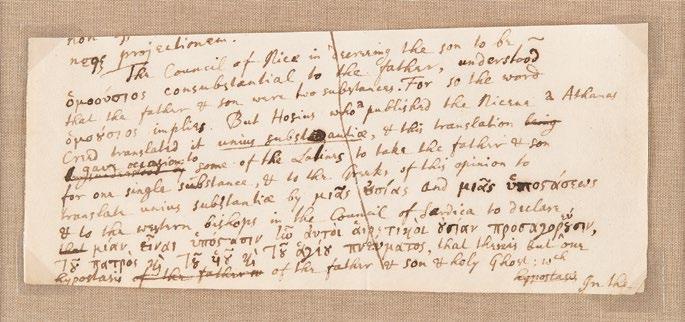 non p
neqe projectionem.
The Council of Nice in decreeing the son to be
ὁμοούσιος consubstantial to the father, understood
that the father & son were two substances. For so the word
ὁμοούσιος implies. But Hosius who published the Nicene a Athanas
Creed translated it unius substantiæ, & this translation being
gave occasion to some of the Latines to take the father & son
for one single substance, & to the Greeks of this opinion to
translate unius substantiæ by μιᾶς ὐσίας and μιᾶς ὑποςάσεως
& to the western bishops in the Council of Sardica to declare
that μίαν εἶναι ὑπόςασιν αὐτοὶ αἱρετικοὶ ὐσίαν προσαγορεύουσιν,
τοῦ πατρὸς καὶ τοῦ υἱοῦ καὶ τοῦ ἁγίου πνεύματος, that there is but one
hypostasis of the father of the father & son & holy Ghost; wch
hypostasis In the